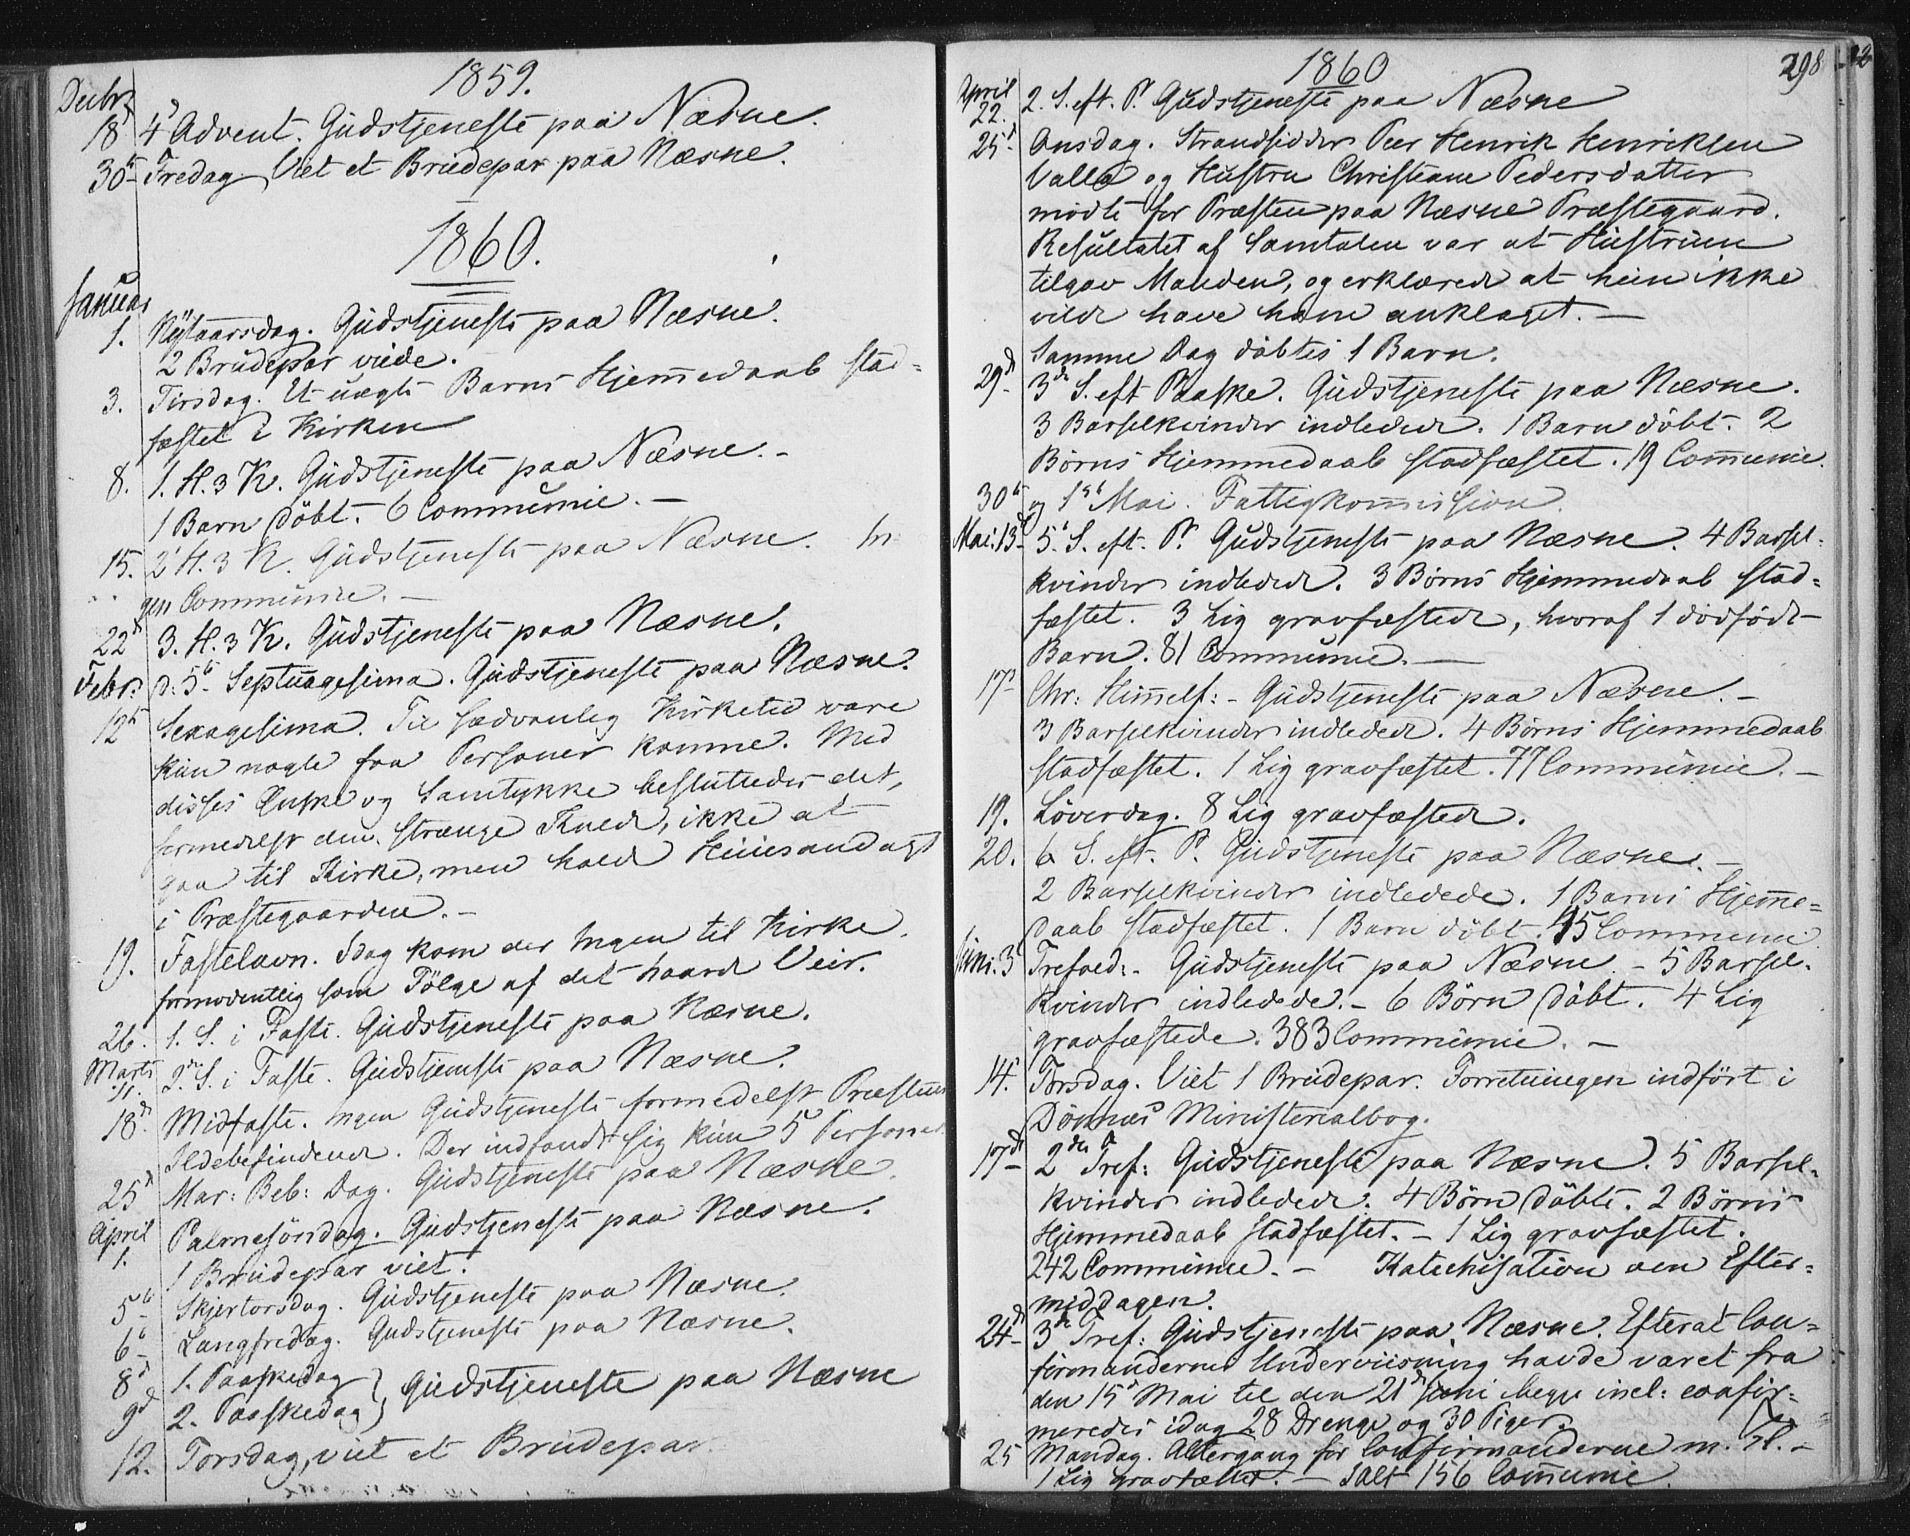 1859.
Decbr
18d 4d Advent. Gudstjeneste paa Næsne.
30te Fredag. Viet et Brudepar paa Næsne.
1860.
Januar
1. Nÿtaarsdag. Gudstjeneste paa Næsne.
2 Brudepar viede.
3. Tirsdag. Et uægte Barns Hjem̅edaab stad=
fæstet i Kirken
8. 1. H. 3 K. Gudstjeneste paa Næsne. -
1 Barn döbt. 6 Communic. —
15. 2' H. 3 K. Gudstjeneste paa Næsne. In-
gen Communice. —
22d 3. H. 3 K. Gudstjeneste paa Næsne.
Febr: d: 5te Septuagesima. Gudstjeneste paa Næsne.
12te Sexagesima. Til sædvanlig Kirketid vare
kun nogle faa Personer komne. Med
disses Ønske og Samtykke besluttedes det,
formedelst den strænge Kuld, ikke at
gaa til Kirke, men hold Huusandagt
i Præstegaarden. -
19. Fastelavn. Idag kom der Ingen til Kirke
formodentlig som Fölge af det haarde Veir.
26. 1. S. i Faste. Gudstjeneste paa Næsne.
Marts
11. 2den S. i Faste. Gudstjeneste paa Næsne.
18de Midfaste. Ingen Gudstjeneste formedelst Præstens
Ildebefindende. Der indfandt sig kun 5 Personer
25d Mar: Beb: Dag. Gudstjeneste paa Næsne.
April
1. Palmesöndag. Gudstjeneste paa Næsne.
1 Brudepar viet.
5te Skjertorsdag. Gudstjeneste paa Næsne.
6te Langfredag. Gudstjeneste paa Næsne.
8d 1. Paaskedag } Gudstjeneste paa Næsne
9d 2. Paaskedag
12. Torsdag, viet et Brudepar.
1860
298
April
22. 2. S. eft. P. Gudstjeneste paa Næsne
25d Onsdag. Strandsidder Peer Henrik Henriksen
Valla og Hustru Christiane Pedersdatter
mödte for Præsten paa Næsne Præstegaard.
Resultatet af Samtalen var at Hustruen
tilgav Manden, og erklærede at hun ikke
vilde have ham anklaget. —
Samme Dag döbtes 1 Barn.
29d 3die S. eft Paaske. Gudstjeneste paa Næsne.
3 Barselkvinder indledede. 1 Barn döbt. 2
Børns Hjemmedaab stadfæstet. 19 Com̅unic.
30te og 1ste Mai. Fattigkom̅ission.
Mai: 13d 5te S. eft. P. Gudstjeneste paa Næsne. 4 Barsel-
kvinder indledede. 3 Børns Hjemmedaab stad=
fæstet. 3 Lig gravfæstede, hvoraf 1 dödfödt
Barn. 81 Communic. —
17d Chr: Him̅elf: - Gudstjeneste paa Næsne. -
3 Barselkvinder indledede. 4 Børns Hjemmedaab
stadfæstet. 1 Lig gravfæstet. 77 Communic. -
19. Løverdag. 8 Lig gravfæstede.
20. 6 S. eft. P. Gudstjeneste paa Næsne. -
2 Barselkvinder indledede. 1 Barns Hjem̅e=
daab stadfæstet. 1 Barn döbt. 45 Communic.
Juni: 3d Trefold: - Gudstjeneste paa Næsne. - 5 Barsel-
kvinder indledede. - 6 Børn döbt. 4 Lig
gravfæstede. 383 Communic. —
14. Torsdag. Viet 1 Brudepar. Forretningen indfört i
Dönnæs Ministerialbog.
17de 2den S. Tref: Gudstjeneste paa Næsne. 5 Barsel-
kvinder indledede. 4 Børn döbte. 2 Børns
Hjemmedaab stadfæstet. - 1 Lig gravfæstet.
242 Communic. - Katechisation om Efter=
middagen.
24de 3die Tref: Gudstjeneste paa Næsne. Efterat Con=
firmandernes Underviisning havde varet fra
den 15d Mai til den 21de Juni begge incl: confir-
meredes idag 28 Drenge og 30 Piger.
25 Mandag. Altergang for Confirmanderne m. fl. -
1 Lig gravfæstet. — Ialt 156 Com̅unic.